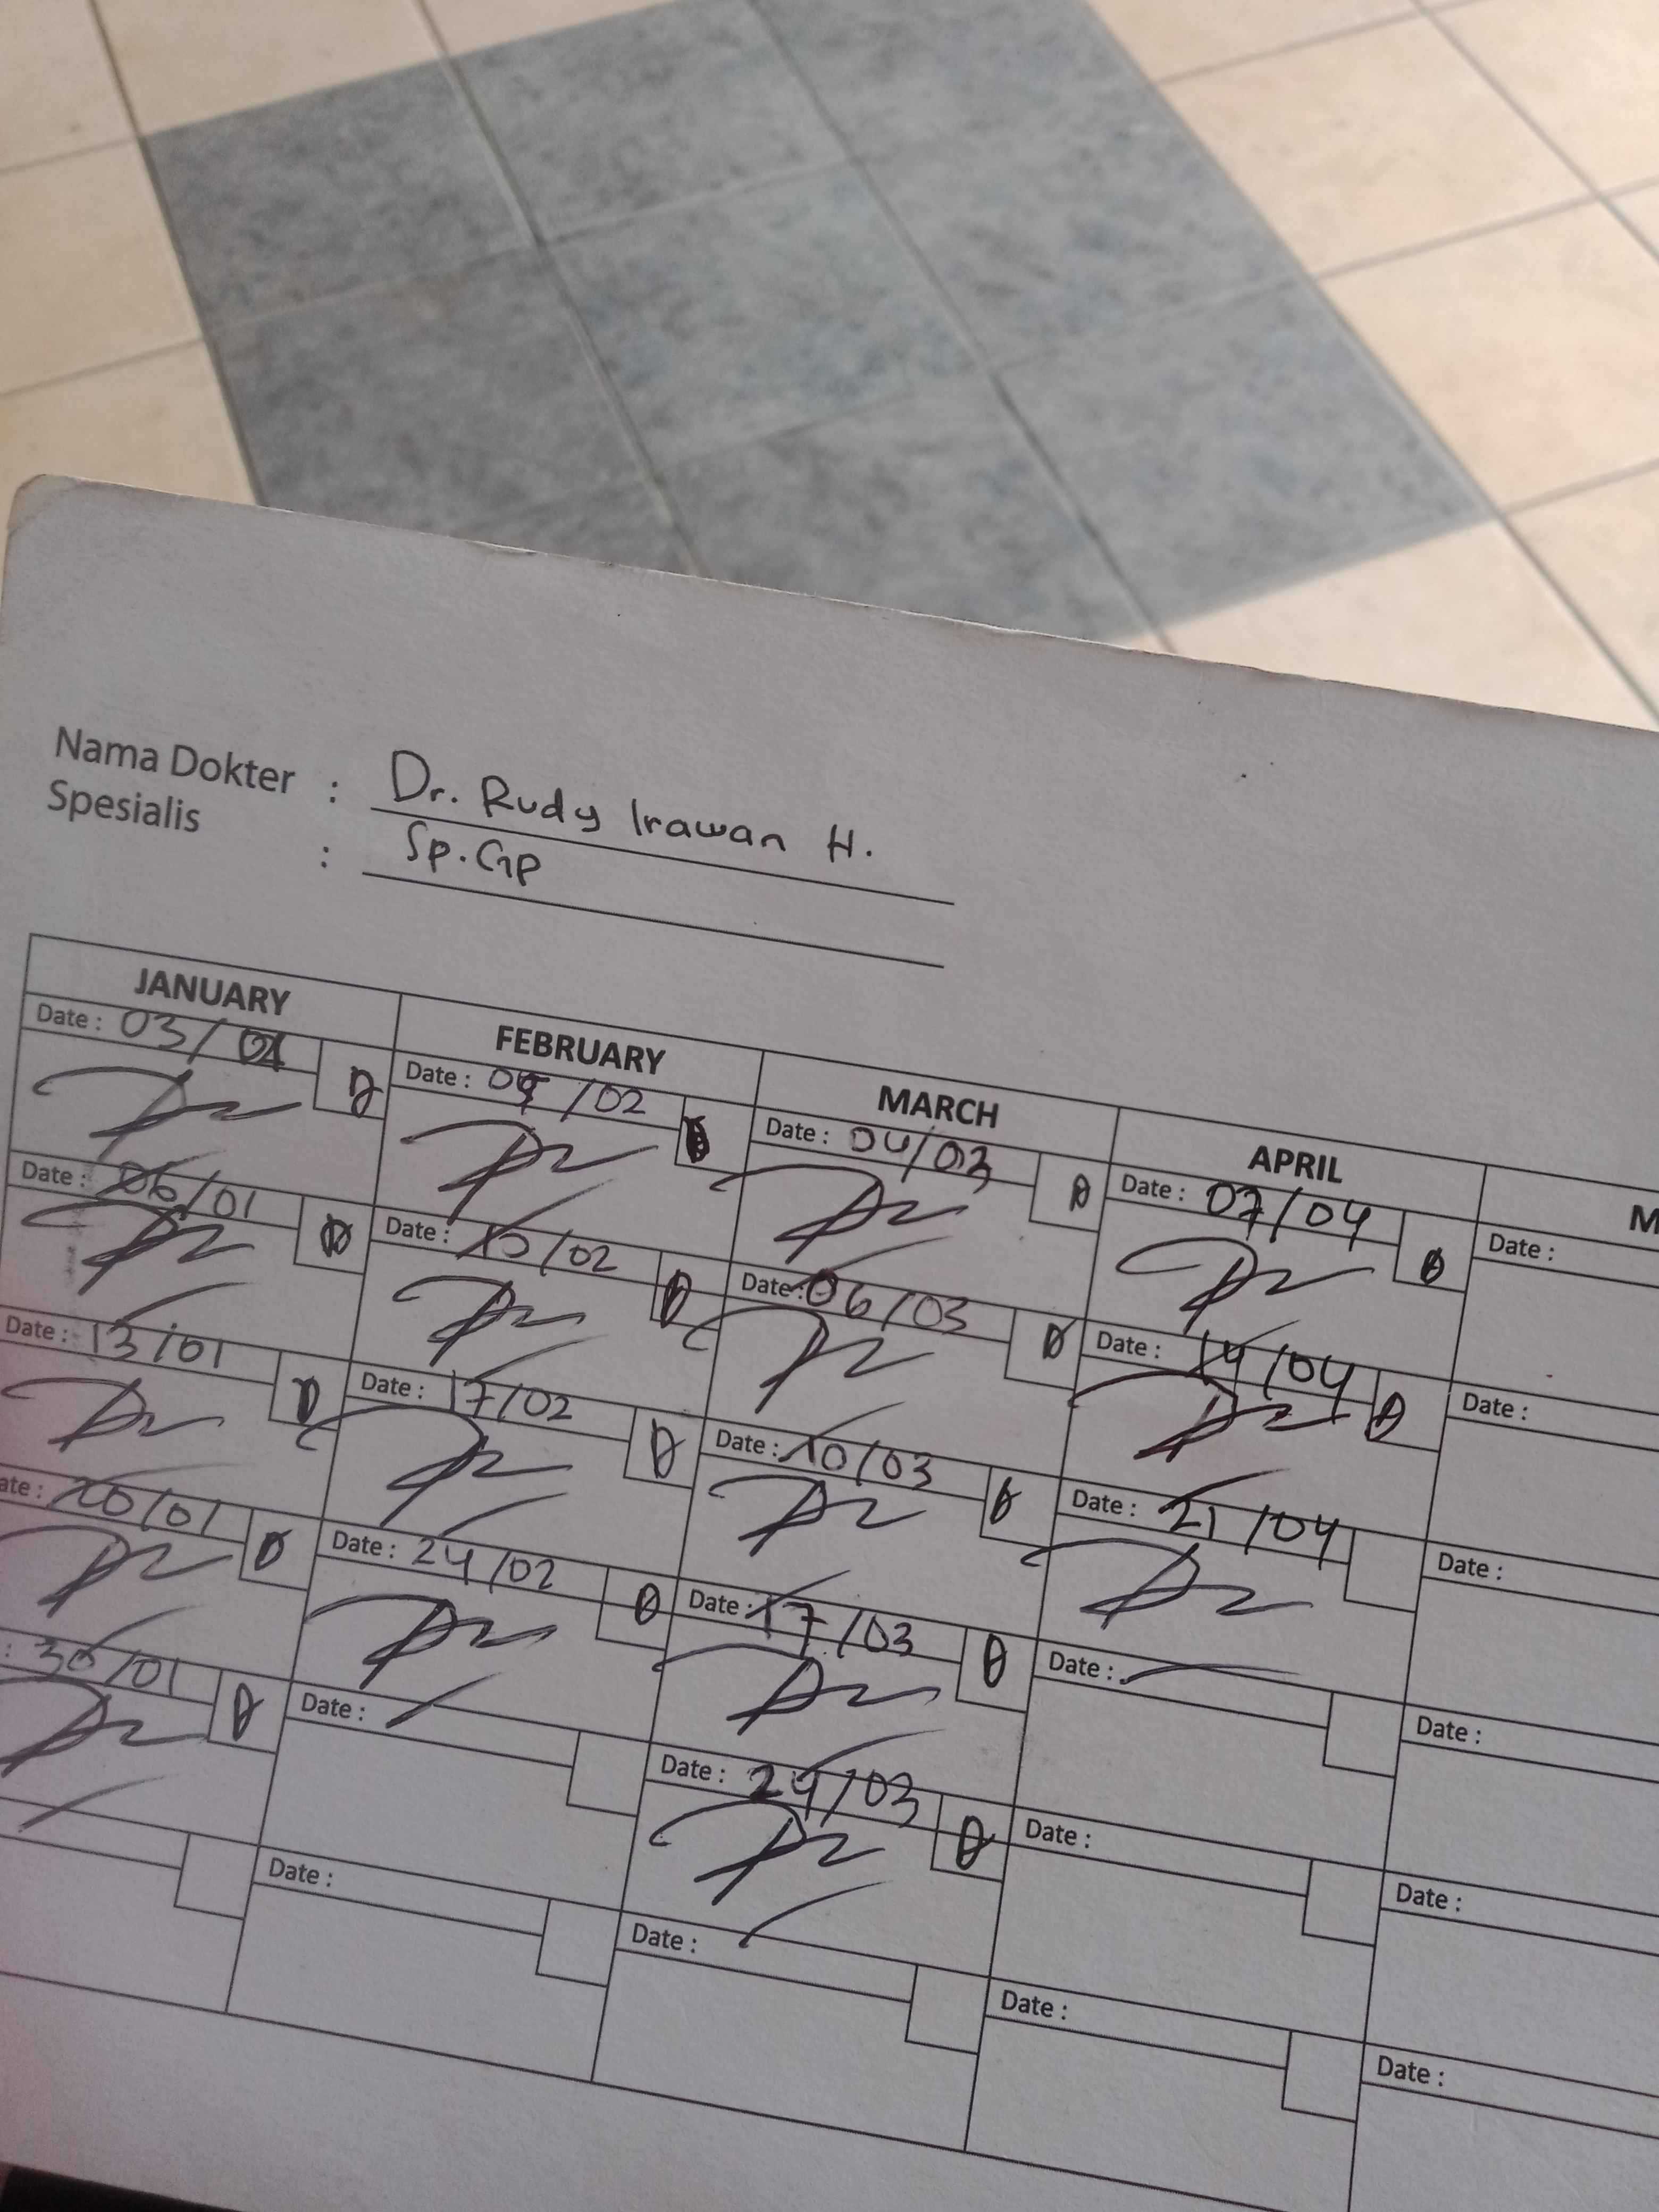 Nama Dokter : Dr. Rudy Irawan H.
Spesialis : Sp.GP
JANUARY FEBRUARY MARCH APRIL M
Date : 03/01
Date : 06/01
Date : 13/01
ate : 20/01
: 30/01
Date : /02
Date : 10/02
Date : 17/02
Date : 24/02
Date :
Date :
Date : 04/03
Date : 06/03
Date : 10/03
Date : 17/03
Date : 24/03
Date :
Date : 07/04
Date : 14/04
Date : 21/04
Date :
Date :
Date :
Date :
Date :
Date :
Date :
Date :
Date :